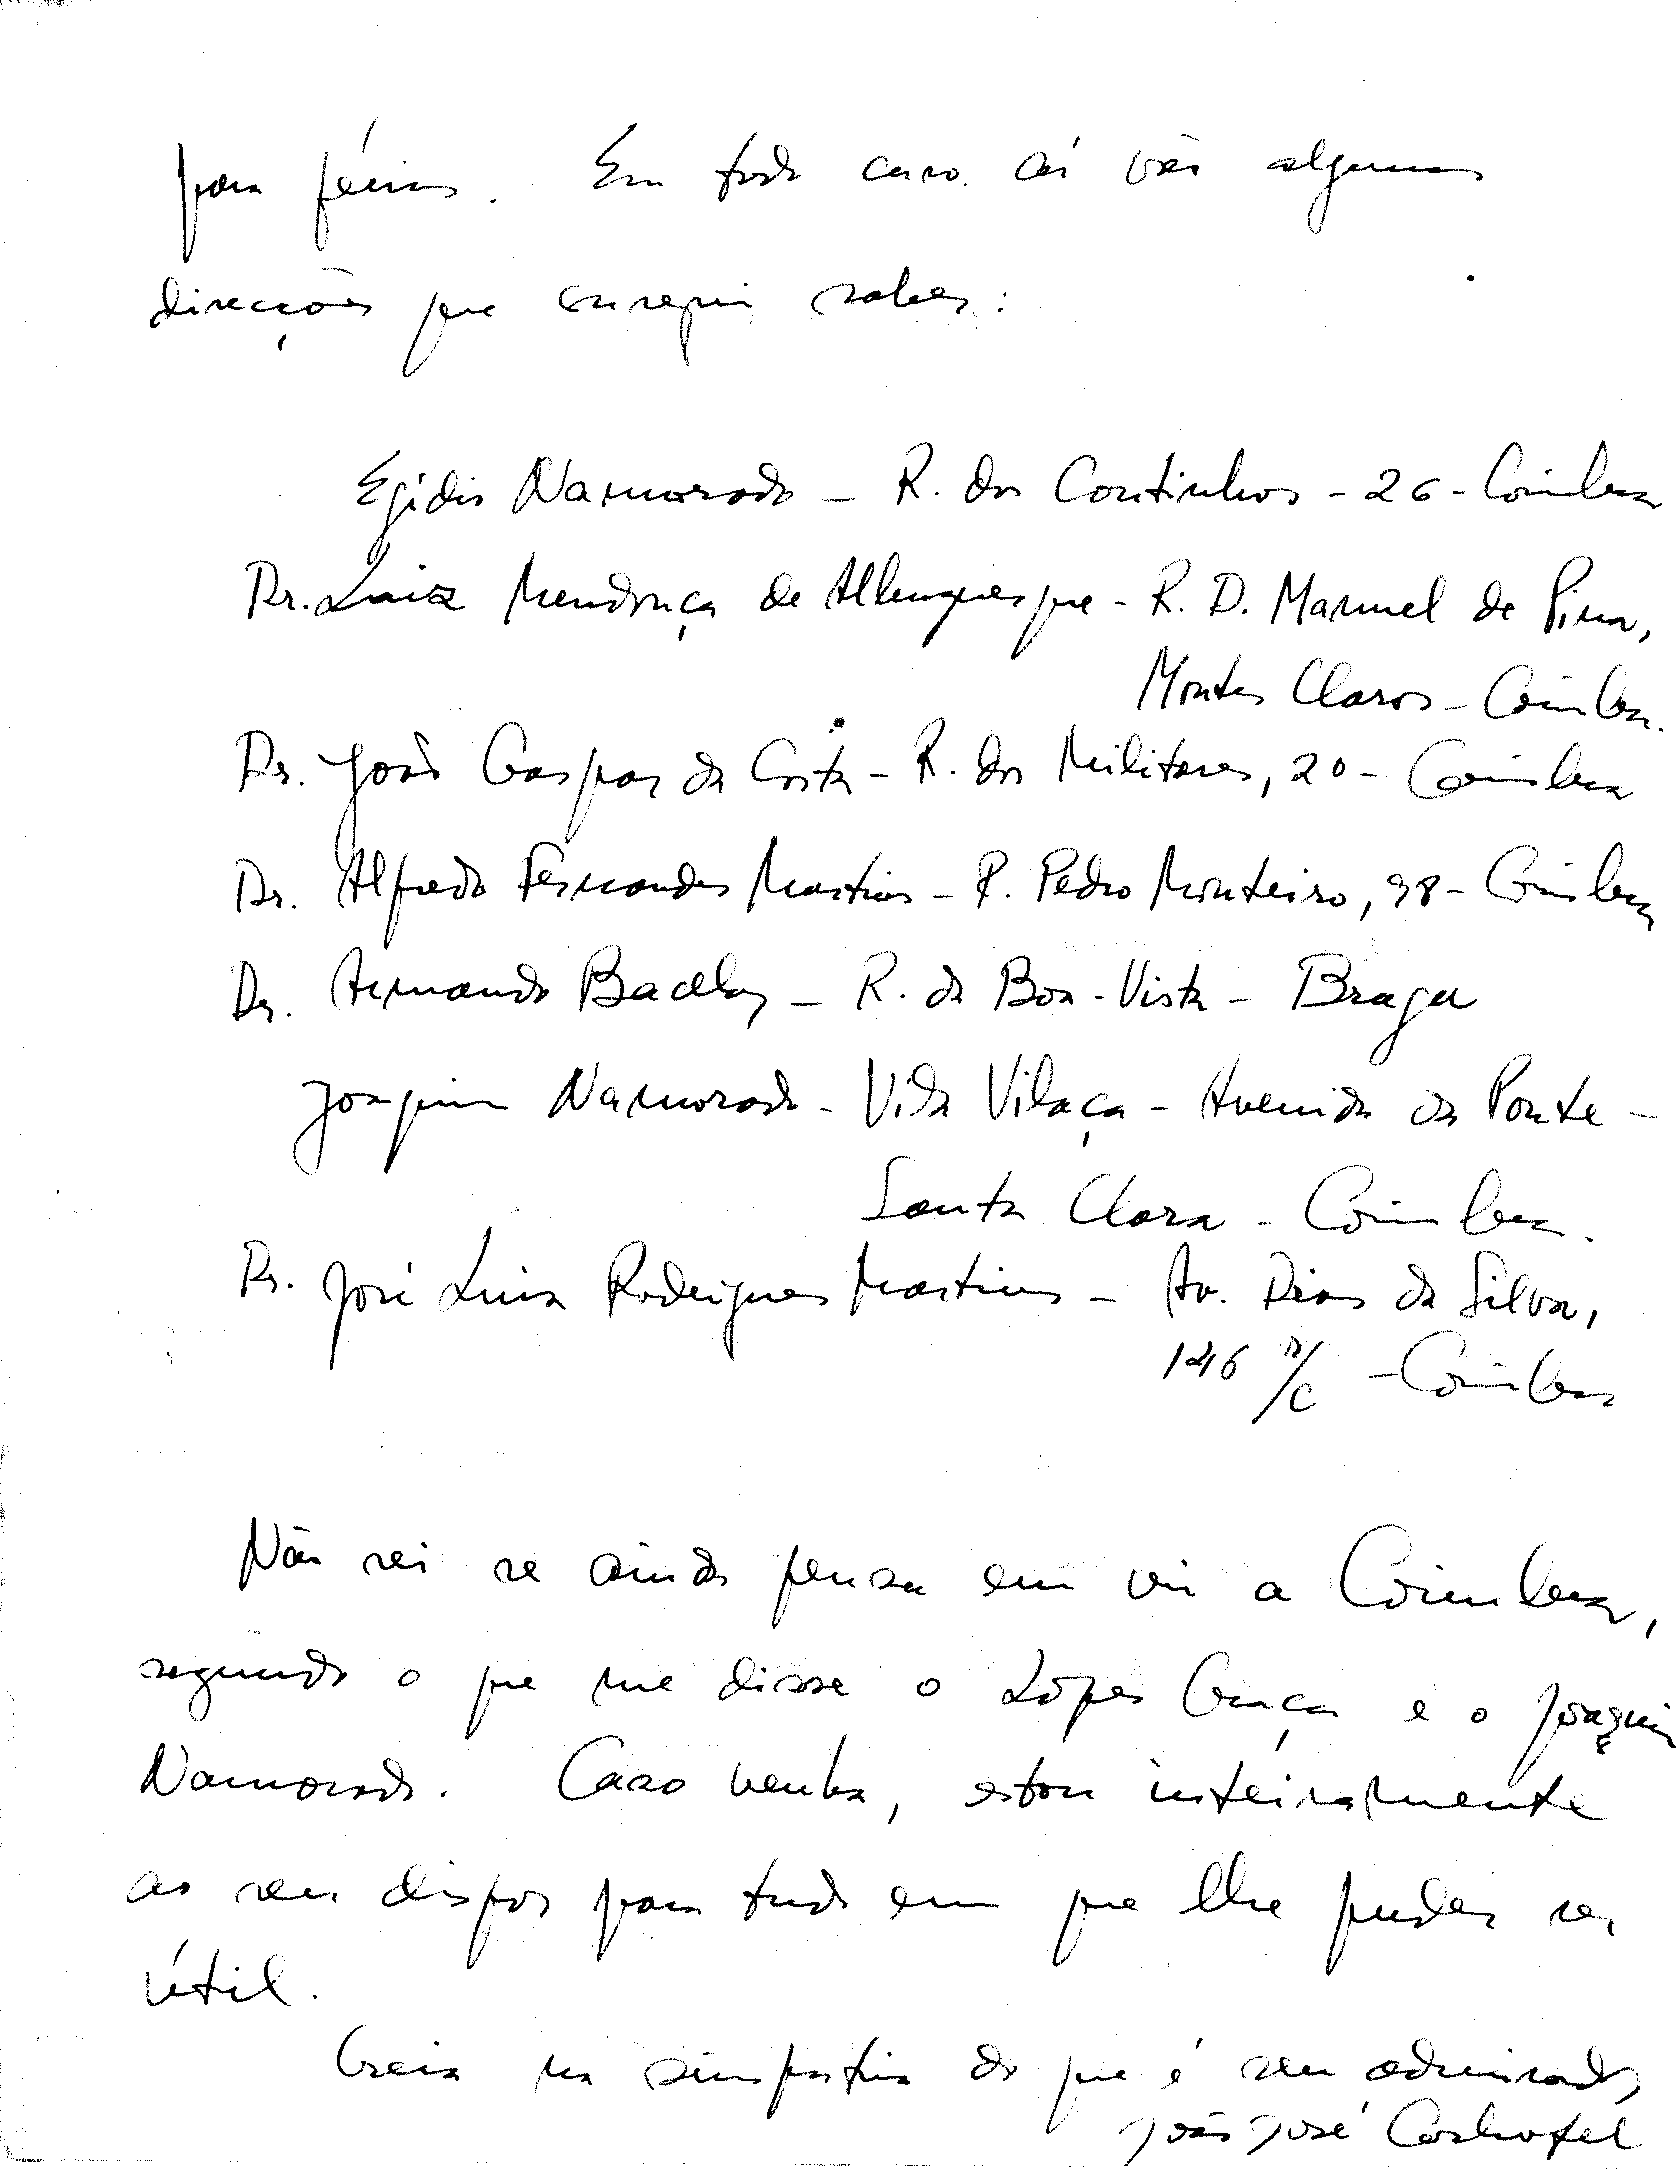 para férias. Em todo caso aí vão algumas
direcções que consegui saber:
Egídio Namorado – R. dos Coutinhos - 26 - Coimbra
Dr. Luiz Mendonça de Albuquerque - R. D. Manuel de Pina,
Montes Claros - Coimbra.
Dr. João Gaspar da Costa - R. dos Militares, 20 - Coimbra
Dr. Alfredo Fernandes Martins - R. Pedro Monteiro, 98 - Coimbra
Dr. Armando Bacelar - R. da Boa-Vista - Braga
Joaquim Namorado - Vida Vilaça - Avenida da Ponte -
Santa Clara - Coimbra.
Dr. José Luiz Rodrigues Martins - Av. Dias da Silva,
146 r/c - Coimbra
Não sei se ainda pensa em vir a Coimbra,
segundo o que me disse o Lopes Graça e o Joaquim
Namorado. Caso venha, estou inteiramente
ao seu dispor para tudo em que lhe puder ser
útil.
Creia na simpatia do que é seu admirador,
João José Cochofel